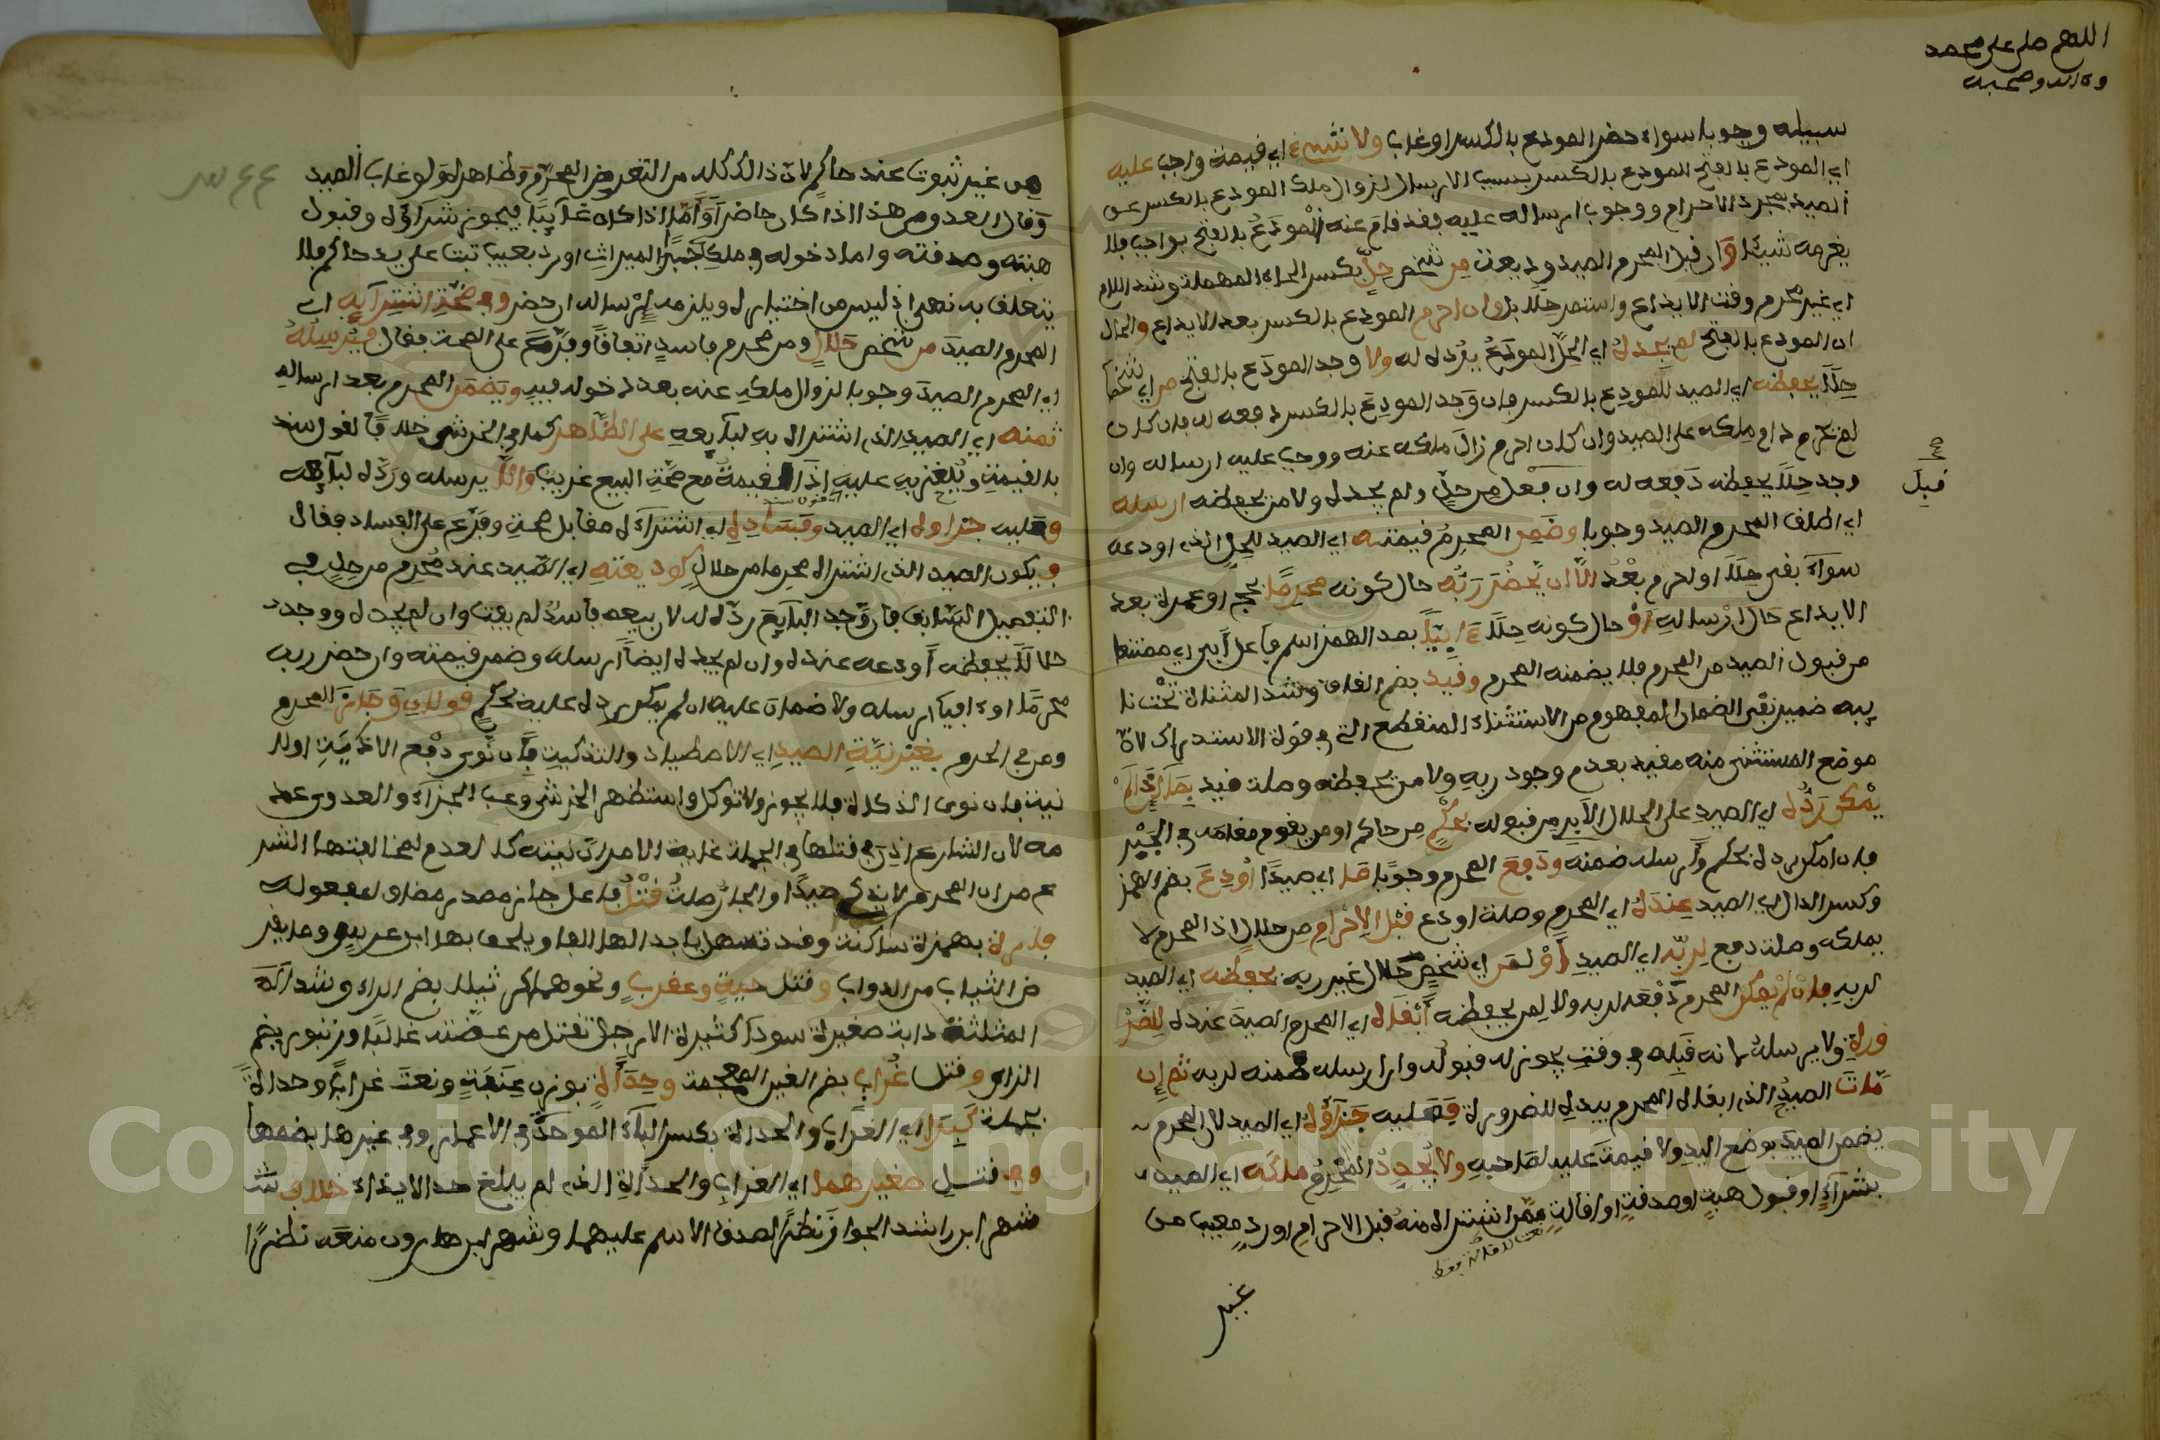 اللهم صل على محمد
وءاله وصحبه
سبيله وجوبا سواء حضر المودع بالكسر او غاب ولا شيء اي قيمة واجب عليه
اي المودع بالفتح للمودع بالكسر بسبب الارسال لزوال ملك المودع بالكسر عن
الصيد بمجرد الاحرام ووجوب ارساله عليه فقد قام عنه المودَع بالفتح بواجب فلا
يغرمه شيئا وان قبل المحرم الصيد وديعة من شخص حِلٍّ بكسر الحاء المهملة وشد اللام
اي غير محرم وقت الايداع واستمر حلالا بل وان احرم المودع بالكسر بعد الايداع والحال
ان المودع بالفتح لم يجده اي الحل المودِع يرده له ولا وجد المودَع بالفتح من اي شخصا
حِلًّا يحفظه اي الصيد للمودع بالكسر فان وجد المودِع بالكسر دفعه له فان كان
لم يحرم دام ملكه على الصيد وان كان احرم زال ملكه عنه ووجب عليه ارساله وان
وجد حِلًّا يحفظه دفعه له وان قبل من حلٍّ ولم يجده ولا من يحفظه ارسله
صح
قبل
اي اطلق المحرم الصيد وجوبا وضمن المحرم قيمته اي الصيد للحل الذي اودعه
سواء بقي حلالا او احرم بعْدُ الا ان يحضُر رَبُّه حال كونه محرمًا بحج او عمرة بعد
الايداع حال ارساله أوْ حال كونه حِلًّا ءَابِيًا بمد الهمز اسم فاعل أبى اي ممتنعا
من قبول الصيد من المحرم فلا يضمنه المحرم وقُيد بضم القاف وشد المثناة تحت نا
يبه ضمير نفي الضمان المفهوم من الاستثناء المنقطع الذي في قوة الاستدراك لان
موضع المستثنى منه مقيد بعدم وجود ربه ولا من يحفظه وصلة قيد بما إذا لمْ
يمْكن رَدُّه اي الصيد على الحلال الآبي من قبوله بحُكْم من حاكم او من يقوم مقامه في الجبْر
فان امكن رده بحكم وأرسله ضمنه ودَفع المحرم وجوبًا ما اي صيدًا أُودِعَ بضم الهمز
وكسر الدال اي الصيد عندَهُ اي المحرم وصلة اودع قبل الإحْرام من حلال اذ المحرم لا
يملكه وصلة دفع لربّه اي الصيد أوْ لمن اي شخص حلال غير ربه يحفظه اي الصيد
لربه فان لمْ يمكن المحرم دَفْعه لربه ولا لمن يحفظه أبْقاه اي المحرم الصيد عنده للضَّرُ
ورة ولا يرسله لانه قَبِله في وقت يجوز له قبوله وان ارسله ضمنه لربه ثم إن
مّاتَ الصيدُ الذي ابقاه المحرم بيده للضرورة فعليه جَزاؤُه اي الصيد لان المحرم
يضمن الصيد بوضع اليد ولا قيمة عليه لصاحبه ولا يُجدِدُ المُحْرِمُ ملكَه اي الصيد
بشراءٍ او قبول هبةٍ او صدقةٍ او اقالةٍ ممّن اشتراه منه قبل الاحرام او ردٍ معيب من
نعت لاقالة فقط
غير
من غير ثبوت عند حاكم لان ذالك كله من التعرض المحرَّم وظاهره ولو غاب الصيد
وقال العدوي هذا اذا كان حاضرًا وأمّا اذا كان غائبًا فيجوز شراؤه وقبول
هبته وصدقته واما دخوله في ملكه جَبْرًا كالميراث او رد بعيب ثبت على يد حاكم فلا
يتعلق به نهي اذ ليس من اختياره ويلزمه إرساله ان حضر وفي صِحَّةِ اشترَائه اي
المحرم الصيدَ من شخص حلالٍ ومن محرم فاسدٍ اتفاقًا وفرَّعَ على الصحة فقال فيُرسِلُهُ
اي المحرم الصيدَ وجوبا لزوال ملكه عنه بعد دخوله فيه ويضمن المحرم بعد ارساله
ثمنه اي الصيد الذي اشتراه به لبائعه على الظّاهر كما في الخرشي خلافًا لقول سند
بالقيمة ويُلغز به عليه إذ القيمة مع صحّةِ البيع غريب وإلّا يرسله وردّه لبائعه
فعليه جزاوه اي الصيد وفسادِهِ اي اشتراءه مقابل صحة وفرّع على الفساد فقال
فيكون الصيد الذي اشتراه محرما من حلال كوديعته اي الصيد عند مُحرم من حِلٍّ في
التفصيل السّابق فان وَّجد البائع ردّه له لان بيعه فاسد لم يفت وان لم يجده ووجد
حلالًا يحفظه أودعه عنده وان لم يجده ايضًا ارسله وضمن قيمته وان حضر ربه
محرمًا او ءابيا ارسله ولا ضمان عليه ان لم يمكن رده عليه بحكم قولان وَجازَ للمحرم
ومن في الحرم بغيْر نيَّةِ الصيدِ اي الاصطياد والتذكية فإن نّوى دفْع الاذيّةِ اولا
نية فان نوى الذكاة فلا يجوز ولا توكل واستظهر الخرشي وعب الجزاء والعدوي عد
مه لان الشارع اذِن في قتلها في الجملة غاية الامر ان نيته كالعدم لمخالفتها الشر
ع من ان المحرم لا يذكي صيدًا والجائز صلةُ قتْلُ فاعل جاز مصدر مضاف لمفعوله
فارة بهمزة ساكنة وقد تسهل بابدالها الفا ويلحق بها ابن عرس وما يقر
ض الثياب من الدواب وقتل حيةٍ وعقربٍ ونحوهما كرُتيلا بضم الراء وشد التاء
المثلثة دابة صغيرة سوداء كثيرة الارجل تقتل من عضته غالبًا وزنبور بضم
الزاي وقتل غُراب بضم الغين المعجمة وحِدَأةٍ بوزن عِنَبَةٍ ونعتَ غرابًا وحداةً
بجملة كَبِرَا اي الغراب والحداة بكسر الباء الموحدّة في الاعمار وفي غيرها بضمها
وفي قتلِ صغيرهما اي الغراب والحدأة الذي لم يبلغ حد الايذاء خلاف شـ
شهر ابن راشد الجواز نظرًا لصدق الاسم عليهما وشهر ابن هارون منعَه نظرًا